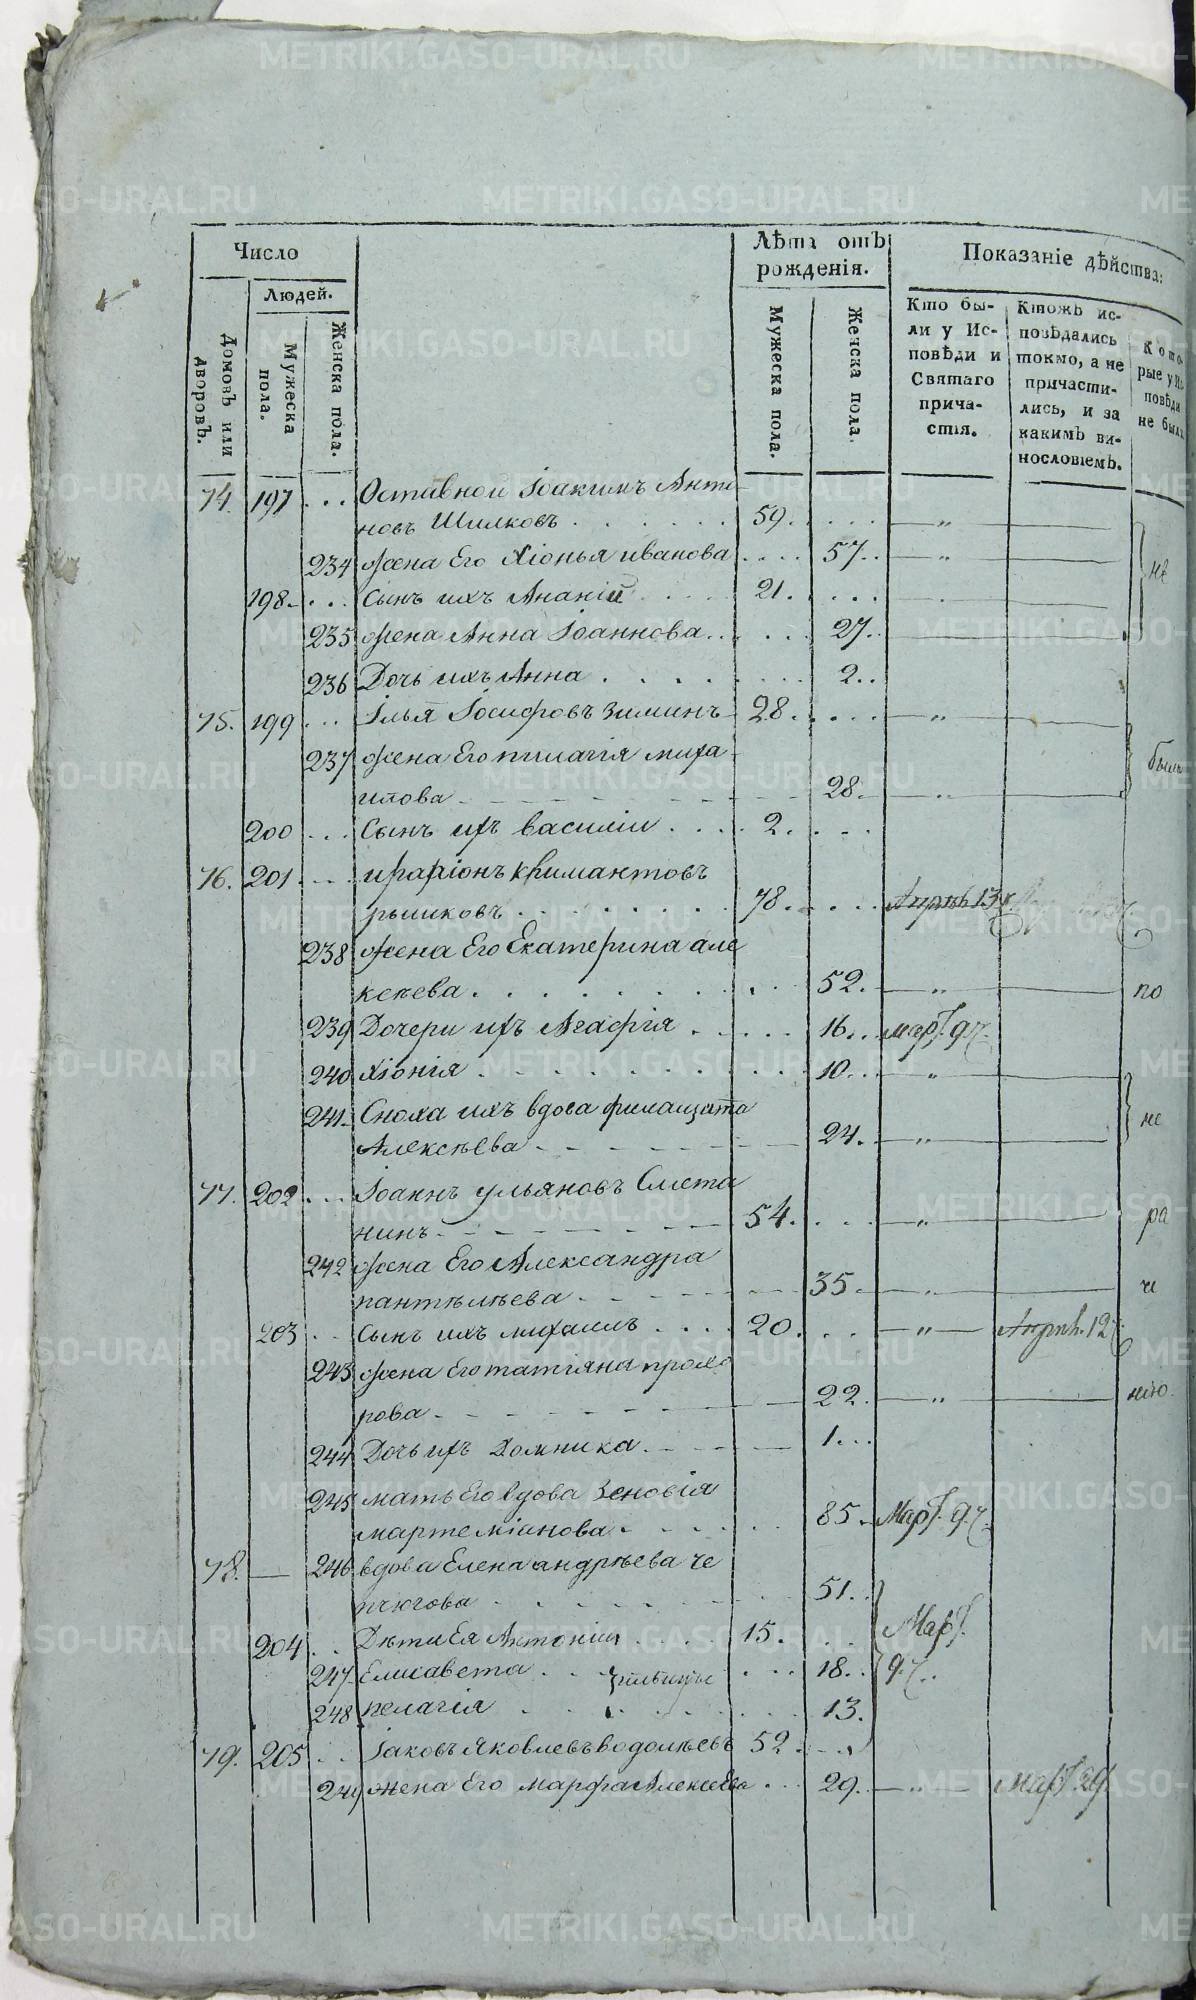 Число
Лѣта отъ рожденія.
Показаніе дѣйства:
Людей.
Домовъ или дворовъ.
Мужеска пола.
Женска пола.
Мужеска пола.
Женска пола.
Кто бы-
ли у Ис-
повѣди и
Святаго
прича-
стія.
Ктожъ ис-
повѣдались
токмо, а не
причасти-
лись, и за
какимъ ви-
нословіемъ.
Кото-
рые у Ис-
повѣди
не были.
74. 197 . . . Отставной Іоакимъ Анти-
новъ Шилковъ 59. — „ —
234 жена Его Хіонья иванова 57. — „ — не
198. . . . Сынъ ихъ Ананій 21.
235 жена Анна Іоаннова 27.
236 Дочь ихъ Анна 2.
75. 199 . . . Ілья Іосифовъ Зиминъ 28. — „ —
237 жена Его пилагія миха-
илова 28. — „ — были
200 . . . Сынъ ихъ василій 2.
76. 201 . . . иларіонъ климантовъ
рышковъ 78. Апрѣл 13 ч.
238 жена Его Екатерина але
ксѣева 52. — „ — по
239 Дочери ихъ Агафія 16. март. 9 ч.
240 Хіонія 10. — „ —
241 Сноха ихъ вдова филацата
Алексѣева 24. — „ — не
77. 202 . . . Іоаннъ ульяновъ Смета
нинъ 54. — „ — ра
242 жена Его Александра
пантѣлѣева 35. — „ — че
203 . . Сынъ ихъ михаилъ 20. — „ — Апрѣл. 12 ч.
243 жена Его татіяна прохо
рова 22. — „ — нію.
244 Дочь ихъ Домника 1.
245 мать Его вдова Зеновія
мартеміанова 85. Март. 9 ч.
78. — 246 вдова Елена андрѣева че
пчюгова 51.
204 . . Дѣти Ея Антоній 15. Март.
247 Елисавета 18. 9 ч.
248 пелагія 13.
79. 205 . . Іаковъ Яковлевъ водолѣевъ 52.
249 жена Его марфа Алексѣева 29. — „ — март. 29.
METRIKI.GASO-URAL.RU